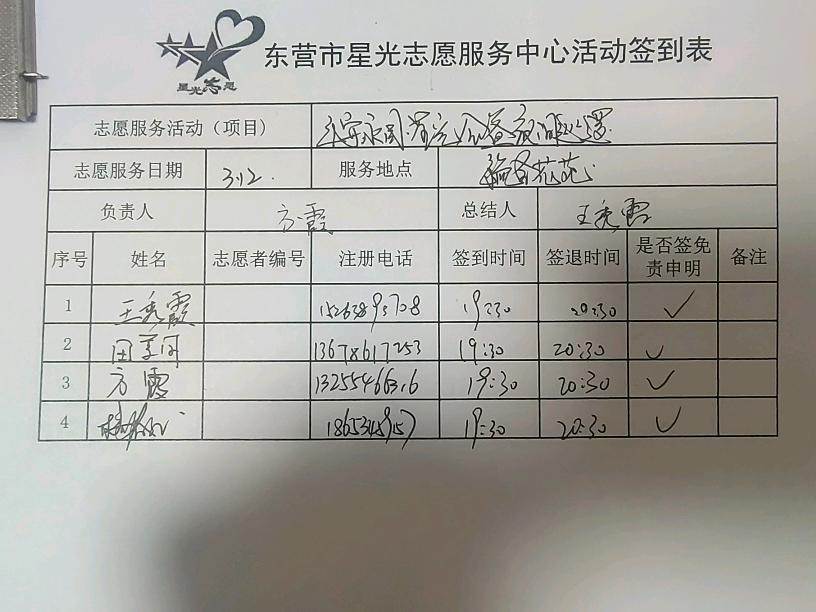 星光志愿
东营市星光志愿服务中心活动签到表
志愿服务活动（项目）
志愿服务日期 3.12. 服务地点
负责人 方霞 总结人 王秀霞
序号 姓名 志愿者编号 注册电话 签到时间 签退时间 是否签免责申明 备注
1 王秀霞 19:30 20:30 ✓
2 13678617253 19:30 20:30 ✓
3 方霞 19:30 20:30 ✓
4 19:30 20:30 ✓